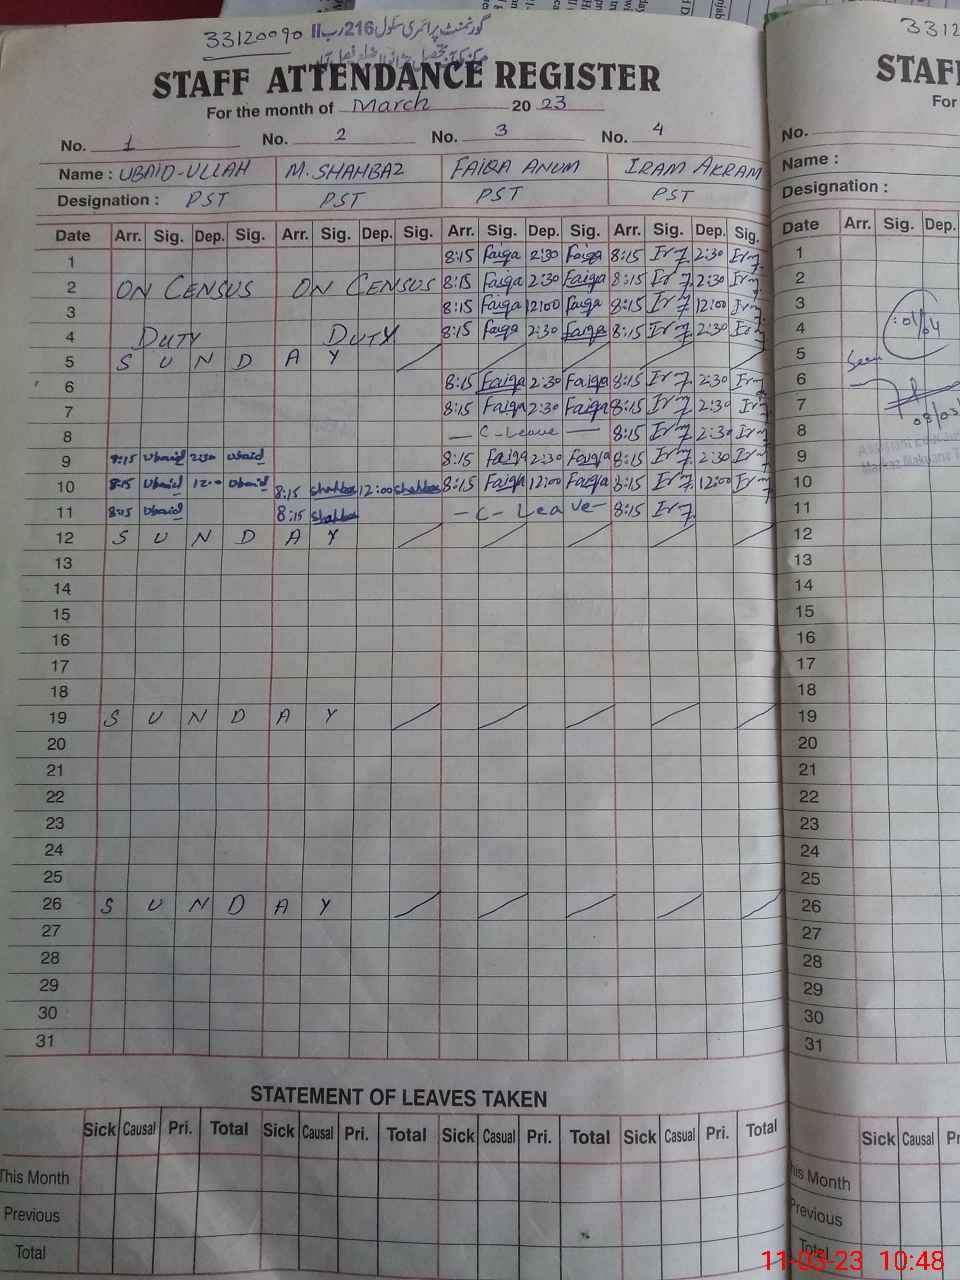 33120090 گورنمنٹ پرائمری سکول 216 رب II
STAFF ATTENDANCE REGISTER
For the month of March 2023
No. 1 No. 2 No. 3 No. 4
Name : UBAID-ULLAH M. SHAHBAZ FAIQA ANUM IRAM AKRAM
Designation : PST PST PST PST
Date Arr. Sig. Dep. Sig. Arr. Sig. Dep. Sig. Arr. Sig. Dep. Sig. Arr. Sig. Dep. Sig.
1 8:15 Faiqa 2:30 Faiqa 8:15 2:30
2 ON CENSUS ON CENSUS 8:15 Faiqa 2:30 Faiqa 8:15 2:30
3 8:15 Faiqa 12:00 Faiqa 8:15 12:00
4 DUTY DUTY 8:15 Faiqa 2:30 Faiqa 8:15 2:30
5 S U N D A Y
6 8:15 Faiqa 2:30 Faiqa 8:15 2:30
7 8:15 Faiqa 2:30 Faiqa 8:15 2:30
8 — C-Leave — 8:15 2:30
9 8:15 Ubaid 2:30 Ubaid 8:15 Faiqa 2:30 Faiqa 8:15 2:30
10 8:15 Ubaid 12:00 Ubaid 8:15 Shahbaz 12:00 Shahbaz 8:15 Faiqa 12:00 Faiqa 8:15 12:00
11 8:15 Ubaid 8:15 Shahbaz - C - Leave - 8:15
12 S U N D A Y
13
14
15
16
17
18
19 S U N D A Y
20
21
22
23
24
25
26 S U N D A Y
27
28
29
30
31
STATEMENT OF LEAVES TAKEN
Sick Causal Pri. Total Sick Causal Pri. Total Sick Casual Pri. Total Sick Casual Pri. Total
This Month
Previous
Total
3312
STAF
For
No.
Name :
Designation :
Date Arr. Sig. Dep.
1
2
3
4
5 Seen
6
7
8
9
10
11
12
13
14
15
16
17
18
19
20
21
22
23
24
25
26
27
28
29
30
31
Sick Causal Pr
This Month
Previous
Total
11-03-23 10:48